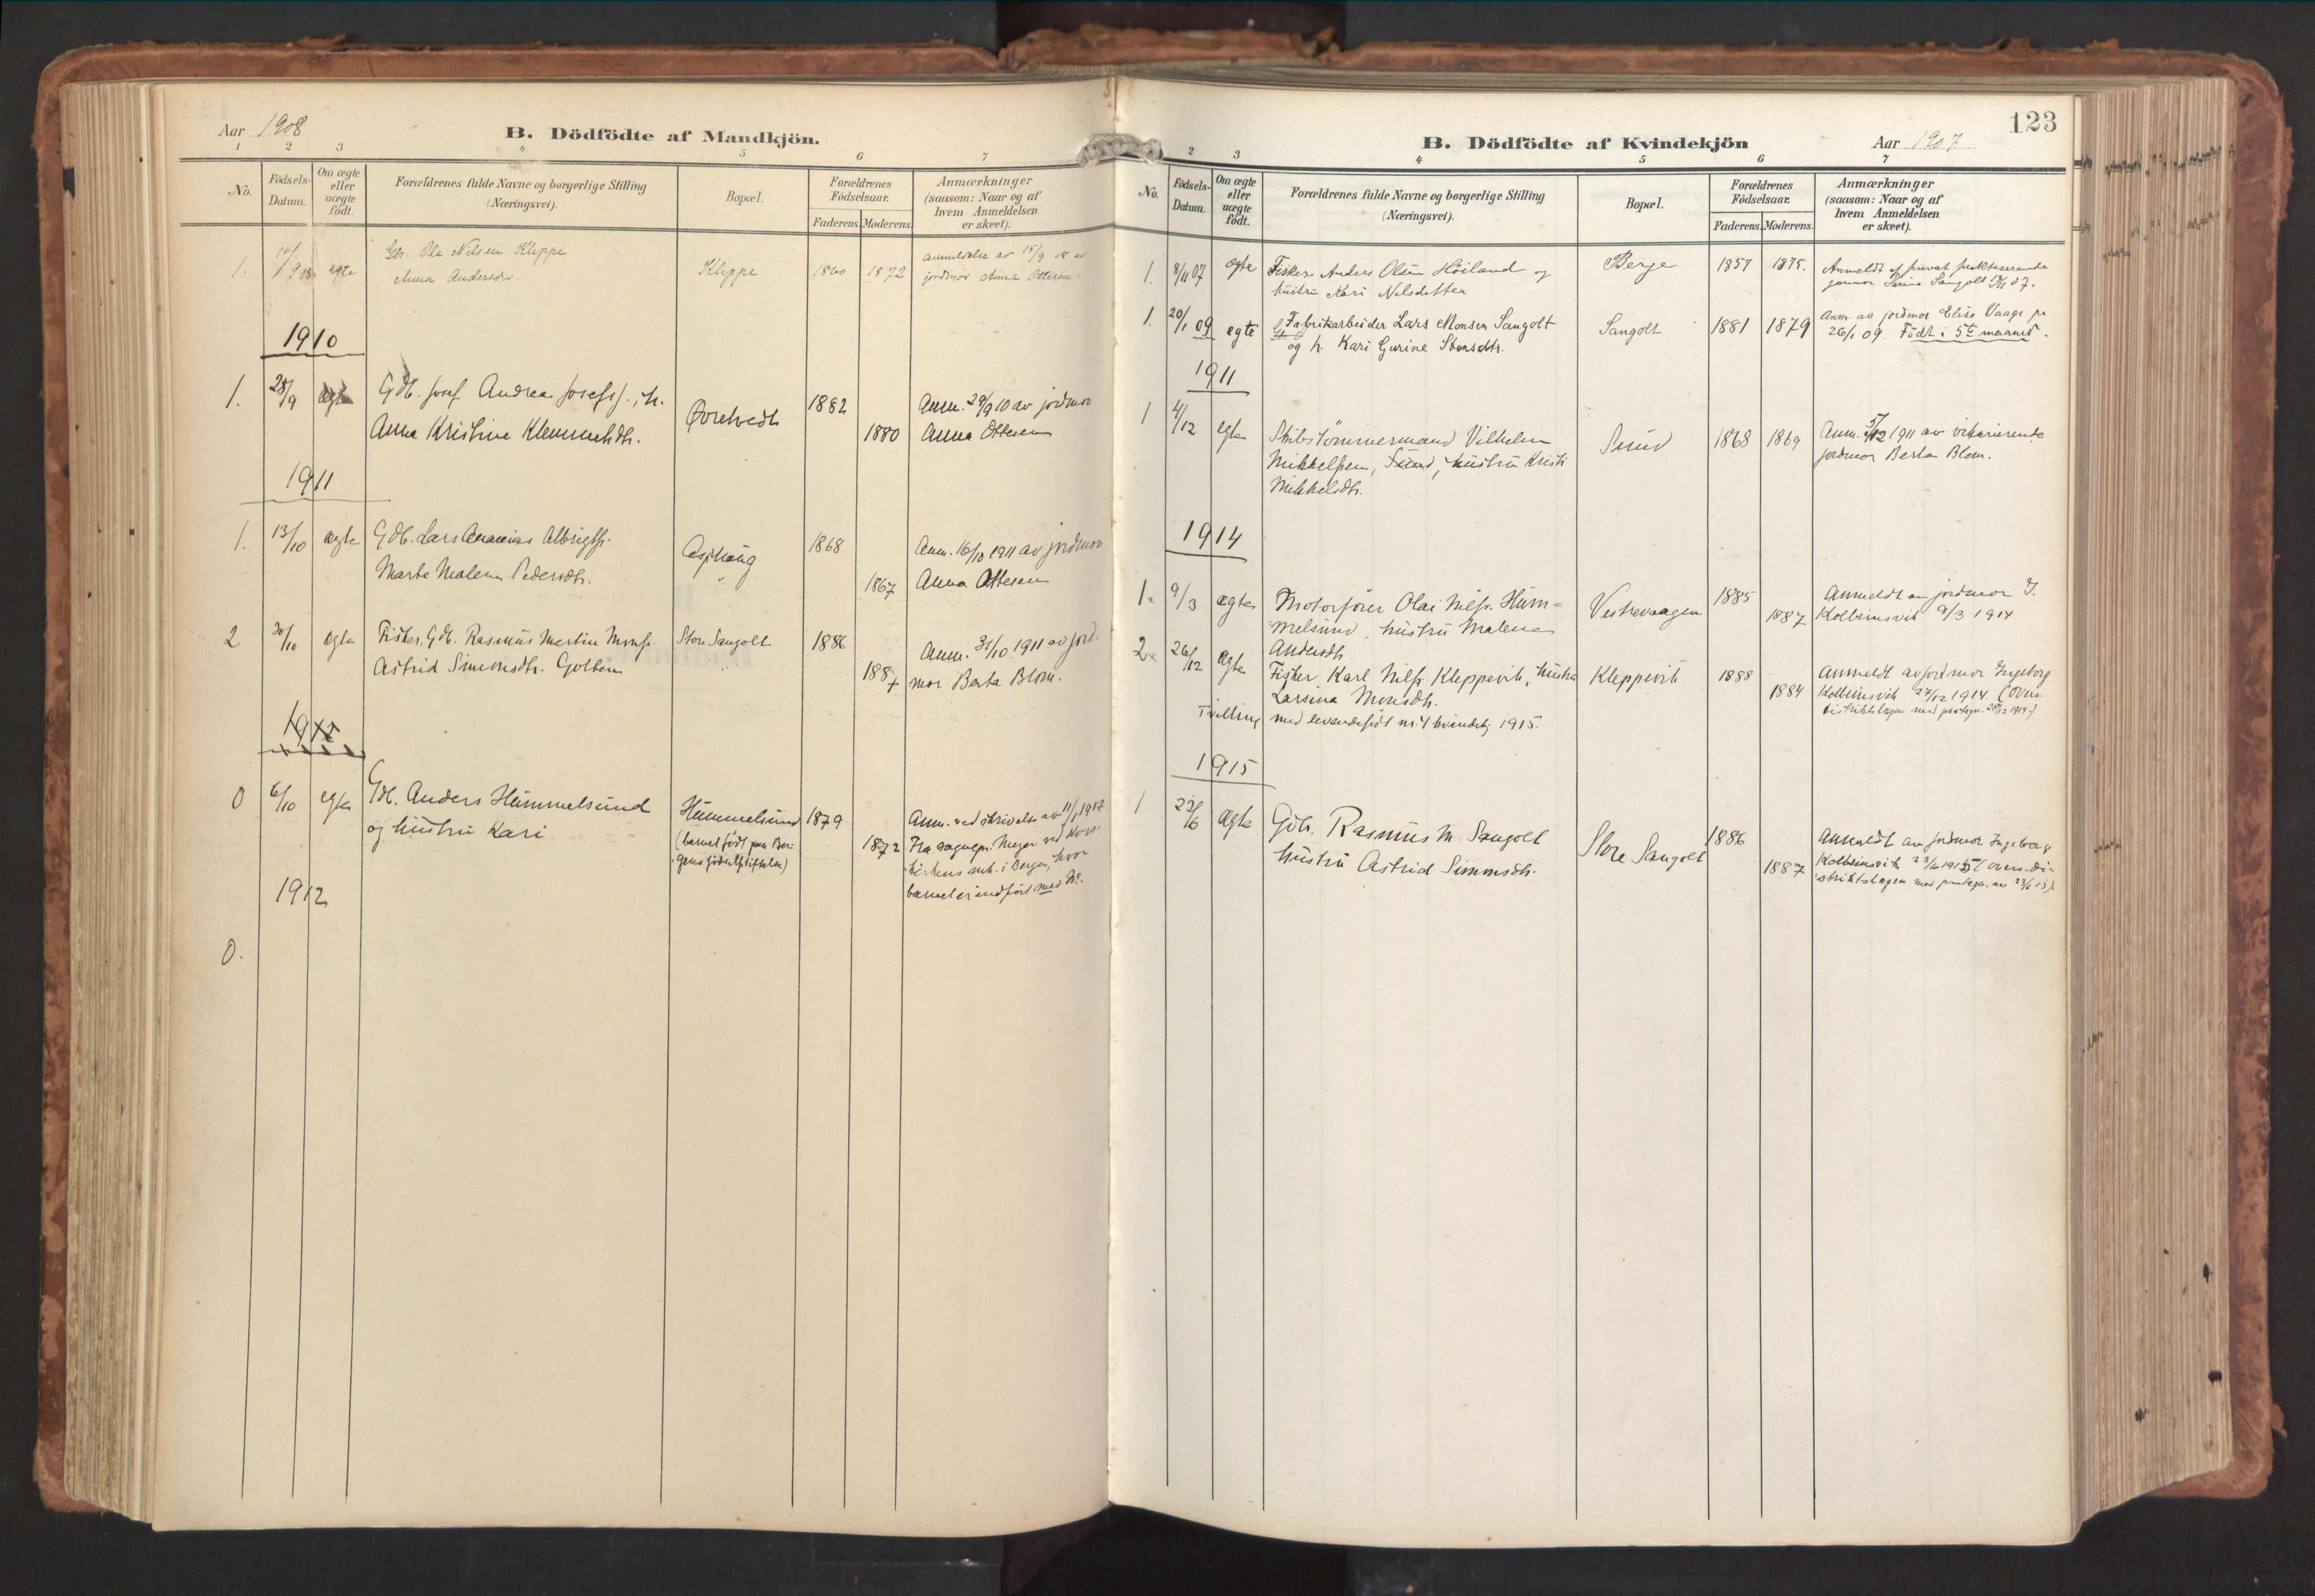 Aar 1908
B. Dödfödte af Mandkjön.
1 2 3 4 5 6 7
No.
Födsels-
Datum.
Om ægte
eller
uægte
födt.
Forældrenes fulde Navne og borgerlige Stilling
(Næringsvei).
Bopæl.
Forældrenes
Födselsaar.
Faderens. Moderens.
Anmærkninger
(saasom: Naar og af
hvem Anmeldelsen
er skeet).
1. egte Gbr. Ole Nilsen Kleppe
Anna Andersdtr.
Kleppe 1860 1872
anmeldelse av 15/9 08 av
jordmor Anna Ottesen.
1910
1. 28/9 ægte Gdb. Josef Andreas Josefs.; h.
Anna Kristine Klemmetsdtr.
Øvretvedt 1882
1880
Anm. 29/9 10 av jordmor
Anna Ottesen
1911
1. 13/10 ægte Gdb. Lars Ananias Albrigts.
Marte Malene Pedersdtr.
Asphaug 1868
1867
Anm. 16/10 1911 av jordmor
Anna Ottesen
2 30/10 ægte Fisker, Gdb. Rasmus Martin Mons.
Astrid Simonsdtr. Golten
Store Sangolt 1886
1887
Anm. 31/10 1911 av jord-
mor Berta Blom.
0 6/10 egte Gdb. Anders Hummelsund
og hustru Kari
Hummelsund 1879
(barnet født paa Ber-
gens fødselsstiftelse)
1872
Anm. ved skrivelse av 11/1 1917
Fra sognepr. Meyer ved Kors-
kirkens mh. i Bergen, hvor
barnet er indført med No.
1912
0.
123
B. Dödfödte af Kvindekjön
Aar 1907
2 3 4 5 6 7
No.
Födsels-
Datum.
Om ægte
eller
uægte
födt.
Forældrenes fulde Navne og borgerlige Stilling
(Næringsvei).
Bopæl.
Forældrenes
Födselsaar.
Faderens. Moderens.
Anmærkninger
(saasom: Naar og af
hvem Anmeldelsen
er skeet).
1. 8/11 07 ægte Fisker Anders Olsen Höiland og
hustru Kari Nelsdatter
Berge 1857 1875.
Anmeldt af privat praktiserende
jormor Serine Sangolt 07.
1. 20/1 09 egte Fabrikarbeider Lars Monsen Sangolt
og h. Kari Gurine Stensdtr.
Sangolt 1881 1879
Anm. av jordmor Elise Vaage pr
26/1 09. Födt i 5te maaned.
1911
1 4/12 egte Skibstömmermand Vilhelm
Mikkelsen, Sund, hustru Kristi
Mikkelsdtr.
Sund 1868 1869
Anm. 5/12 1911 av vikarierende
jordmor Berta Blom.
1914
1. 9/3 ægte Motorfører Olai Nilss. Hum-
melsund, hustru Malene
Andersdtr.
Vestrevaagen 1885
1887
Anmeldt av jordmor I.
Kolbeinsvik 9/3 1914
2. 26/12 ægte Fisker Karl Nilss. Kleppevik, hustru
Larsina Monsdtr.
Tvilling med levendefødt nr. 1 kvindekj. 1915.
Kleppevik 1888
1884
Anmeldt av jordmor Ingeborg
Kolbeinsvik 27/12 1914 (Overs.
distriktslægen med paategn. 28/12 1914)
1915
1 23/6 ægte Gdb. Rasmus M. Sangolt
hustru Astrid Simonsdtr.
Store Sangolt 1886
1887
Anmeldt av jordmor Ingeborg
Kolbeinsvik 23/6 1915 (overs. di-
striktslægen med paategn. av 23/6 15).